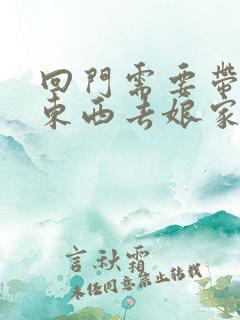 回門需要帶
東西去娘家
言秋霜
未经同意禁止转载